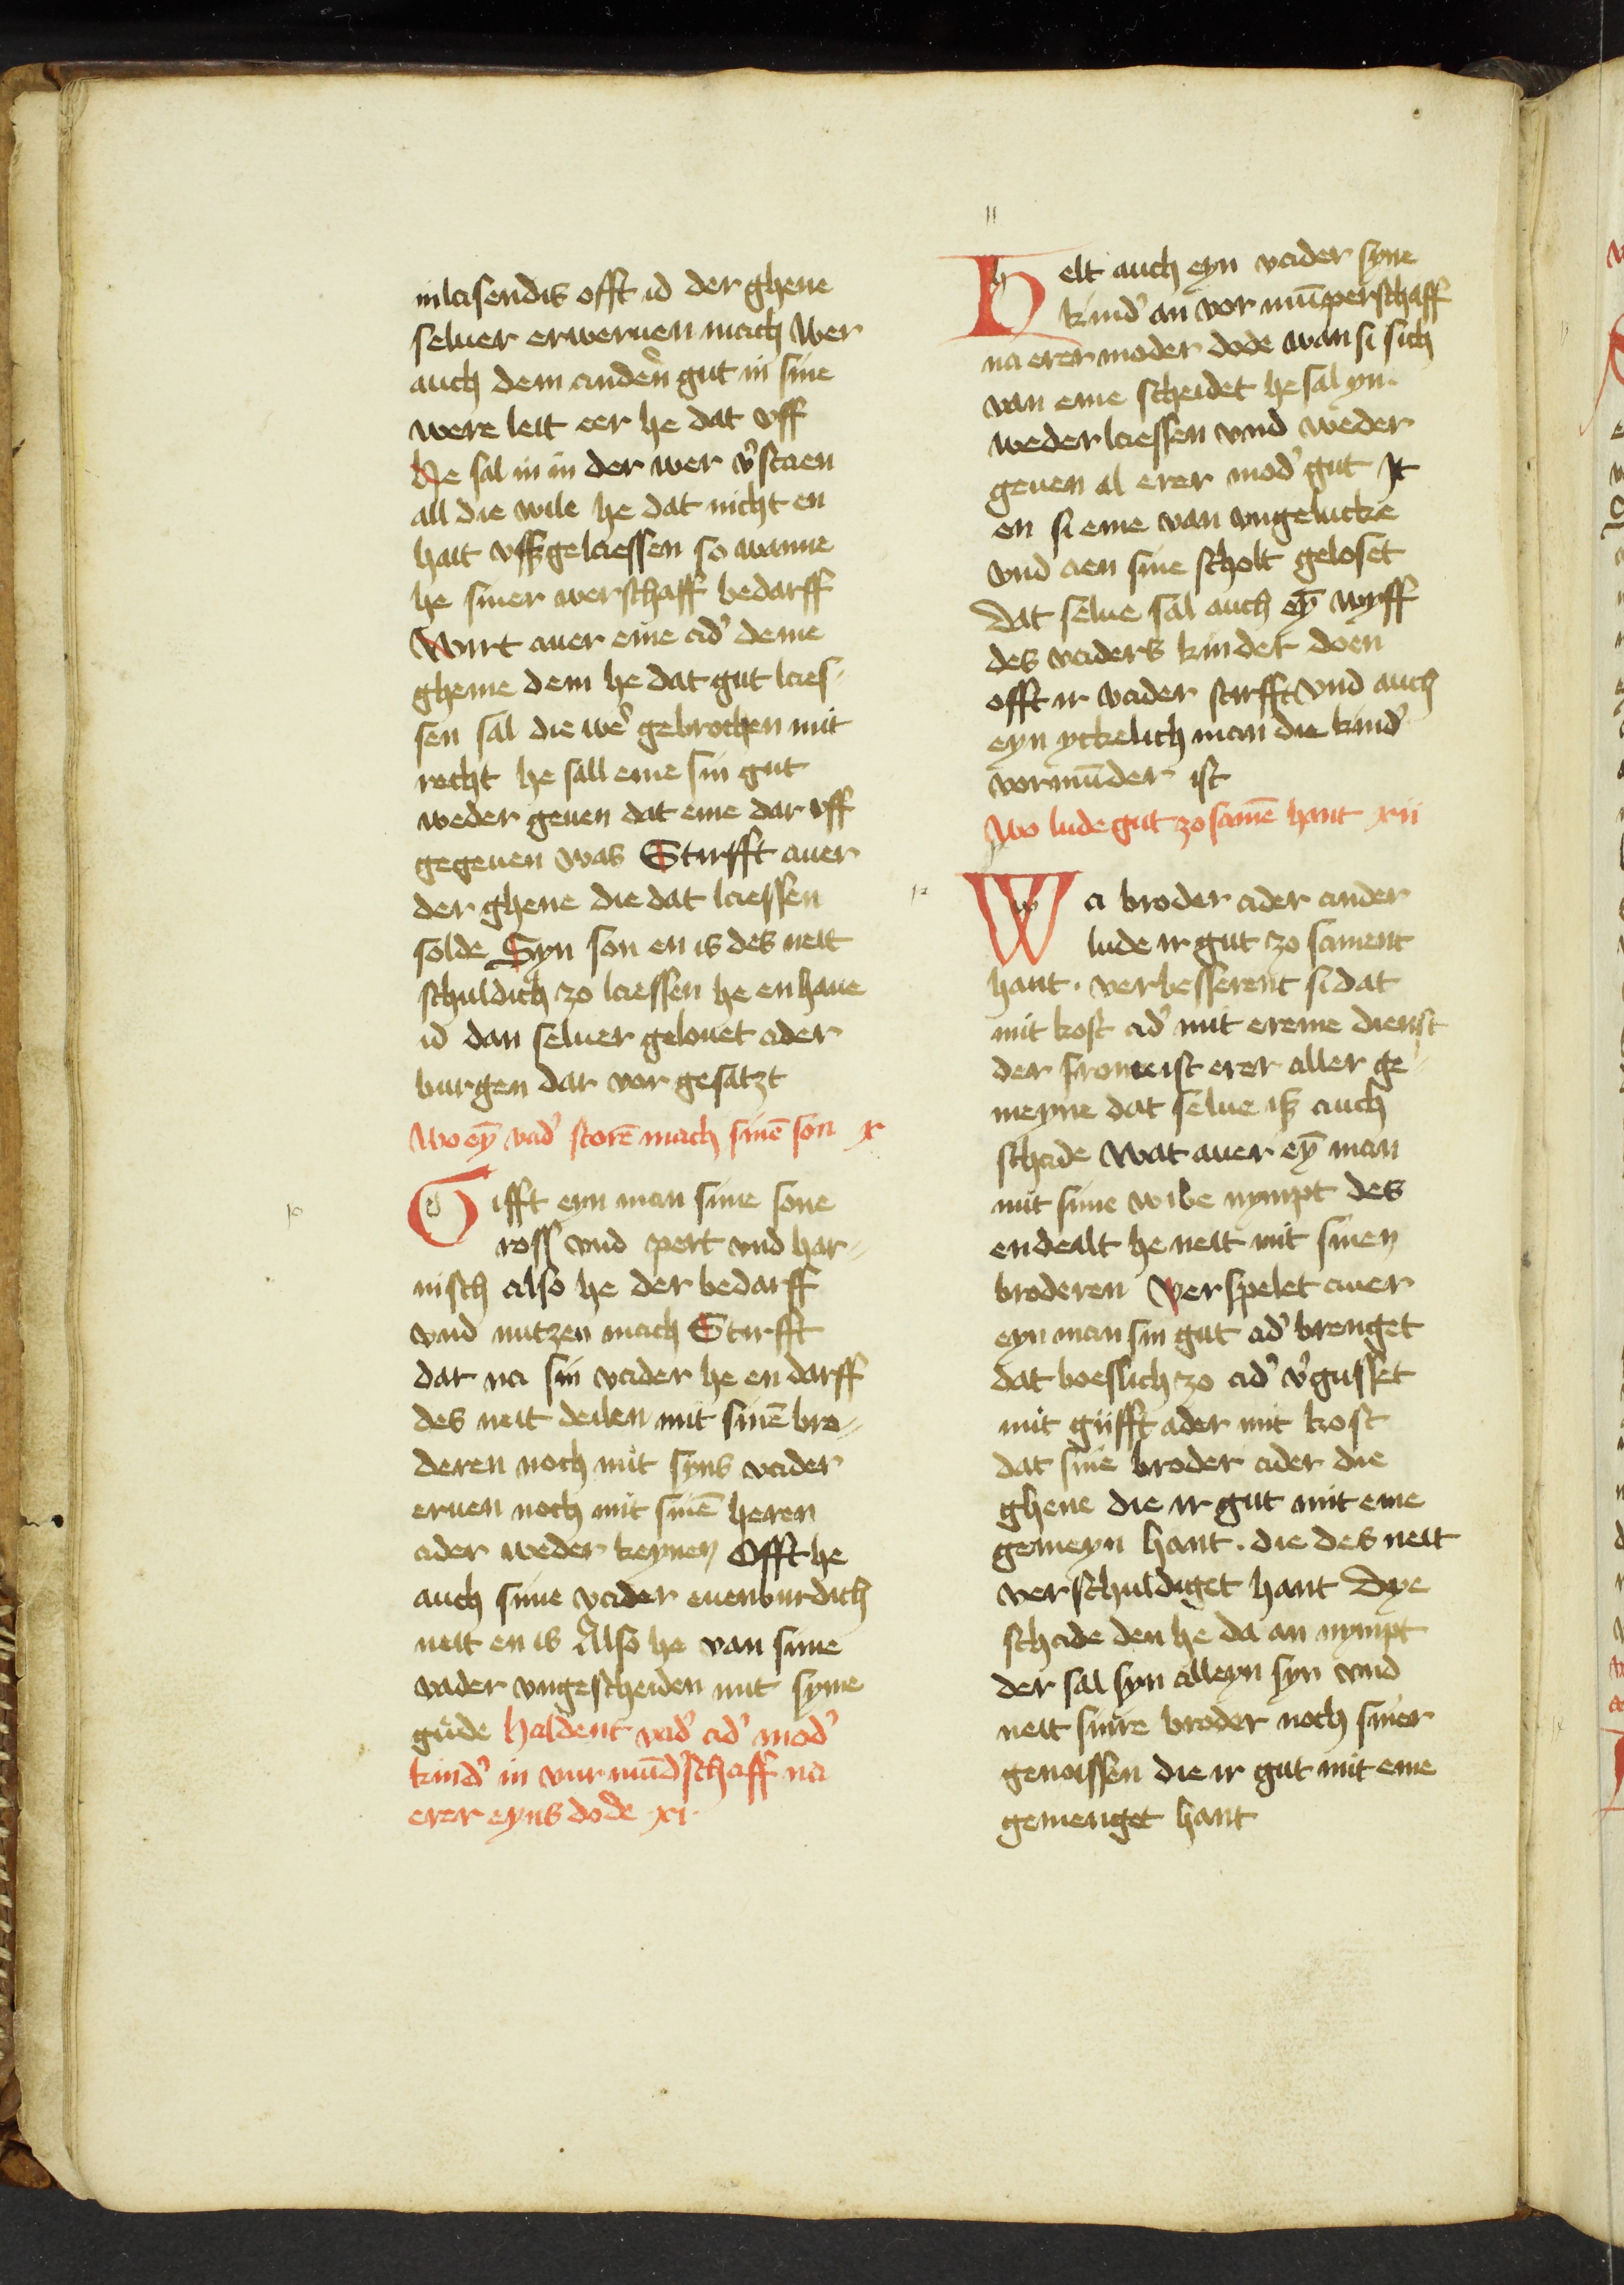 inlaisendis offt id der ghene
seluer erweruen mach Wer
auch dem anden̉ gut in sine
were leit eer he dat vff
He sal in in der wer v̉staen
all die wile he dat nicht en
hait vffgelaessen so wanne
he siner werschaff bedarff
Wirt auer eme ad̉ deme
gheme dem he dat gut laes-
sen sal die wer̉ gebrochen mit
recht he sall eme sin gut
weder geuen dat eme dar vff
gegeuen was Stirfft auer
der ghene die dat laessen
solde Syn son en is des neit
schuldich zo laessen he en haue
id dan seluer gelouet ader
burgen dar vor gesatzt
Wo eȳ vad̉ storē mach sinē son x
10
Gifft eyn man sime sone
ross vnd pert vnd har-
nisch also he der bedarff
vnd nutzen mach Stirfft
dar na sin vader he en darff
des neit deilen mit sinē bro-
deren noch mit syns vader
eruen noch mit sinē heren
ader weder keynen Offt he
auch sime vader euenburdich
neit en is Also he van sime
vader vngescheiden mit syme
gude haldent vad̉ ad̉ mod̉
kind̉ in vur mūd̉schaff na
erer eyns dode xi
11
Helt auch eyn vader syne
kind̉ an vor mūperschaff
na erer moder dode wan si sich
van eme scheidet he sal yn
weder laessen vnd weder
geuen al erer mod̉ gut It
en si eme van vngelucke
vnd aen sine scholt geloset
Dat selue sal auch eȳ wyff
des vaders kinder doen
offt ir vader stirfft vnd auch
eyn yckelich man die kind̉
vormūder ist
Wo lude gut zo samē hant xii
12
Wa broder ader ander
lude ir gut zo sament
hant. verbesserent si dat
mit kost ad̉ mit ereme dienst
der frome ist erer aller ge-
meyne dat selue is auch
schade Wat auer eȳ man
mit sime wibe nympt des
en dealt he neit mit sinen
broderen Verspelet auer
eyn man sin gut ad̉ brenget
dat boeslich zo ad̉ v̉gusset
mit gifft ader mit kost
dat sine broder ader die
ghene die ir gut mit eme
gemeyn hant. die des neit
verschuldiget hant Dye
schade den he da an nympt
der sal syn alleyn syn vnd
neit sinre broder noch siner
genoissen die ir gut mit eme
gemenget hant